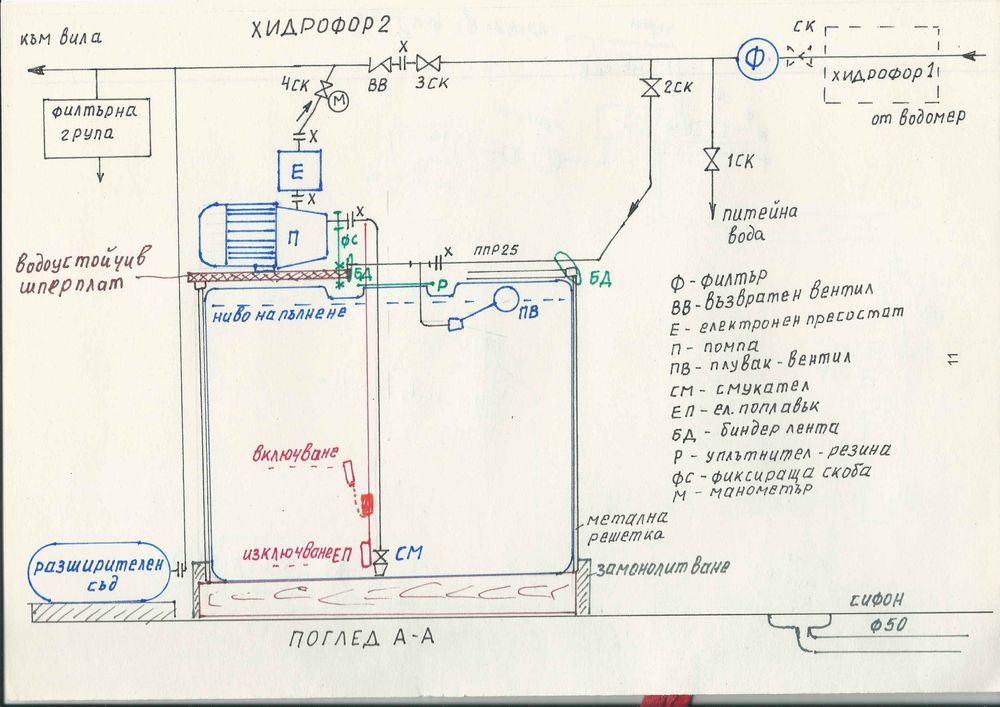 ХИДРОФОР 2
към вила
СК
Ф
ХИДРОФОР 1
от водомер
4СК
М
ВВ
Х
3СК
2СК
1СК
питейна
вода
филтърна
група
Х
Е
Х
П
Х
ФС
БД
Х
ППР25
БД
Р
водоустойчив
шперплат
ниво на пълнене
ПВ
Ф - филтър
ВВ - възвратен вентил
Е - електронен пресостат
П - помпа
ПВ - плувак - вентил
СМ - смукател
ЕП - ел. поплавък
БД - биндер лента
Р - уплътнител - резина
ФС - фиксираща скоба
М - манометър
11
включване
изключване ЕП
СМ
метална
решетка
замонолитване
разширителен
съд
сифон
Ф50
ПОГЛЕД А-А